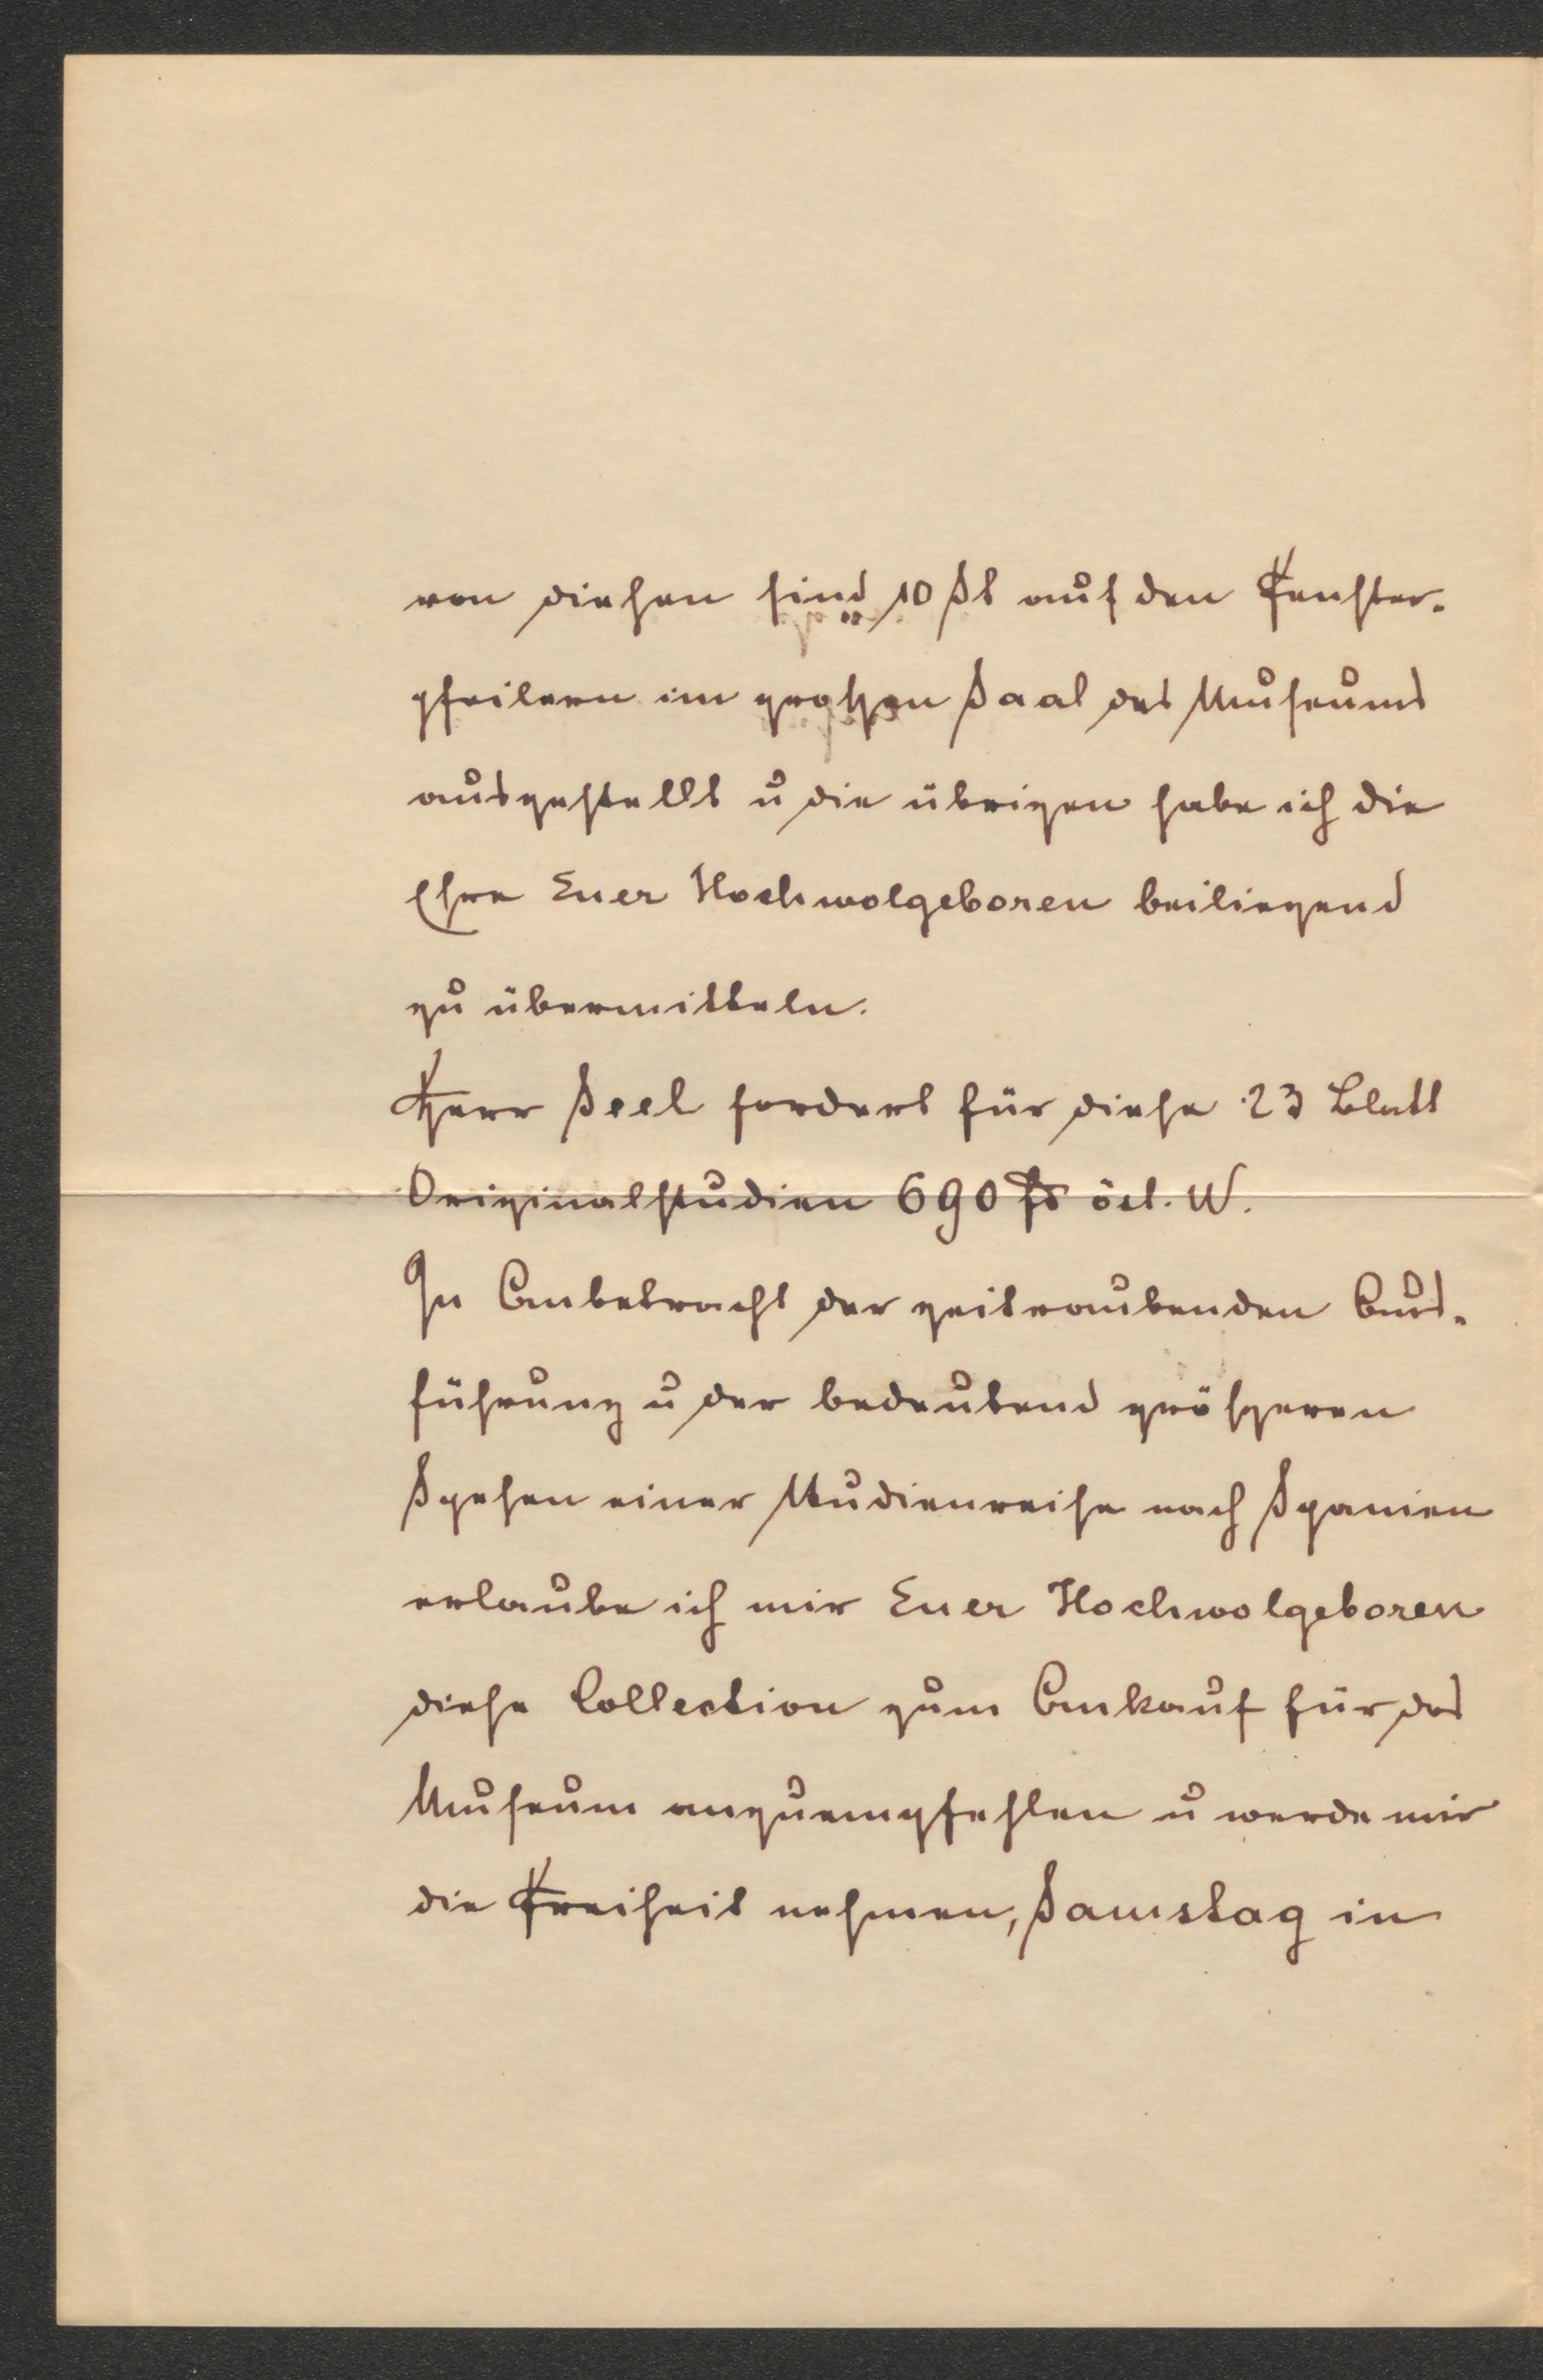 von diesen sind 10 St auf den Fenster-
pfeilern im großen Saal des Museums
ausgestellt u die übrigen habe ich die
Ehre Euer Hochwolgeboren beiliegend
zu übermitteln.
Herr Seel fordert für diese 23 Blatt
Originalstudien 690 fl öst. W.
In Anbetracht der zeitraubenden Aus-
führung u der bedeutend größeren
Spesen einer Studienreise nach Spanien
erlaube ich mir Euer Hochwolgeboren
diese Collection zum Ankauf für das
Museum anzuempfehlen u werde mir
die Freiheit nehmen, Samstag in